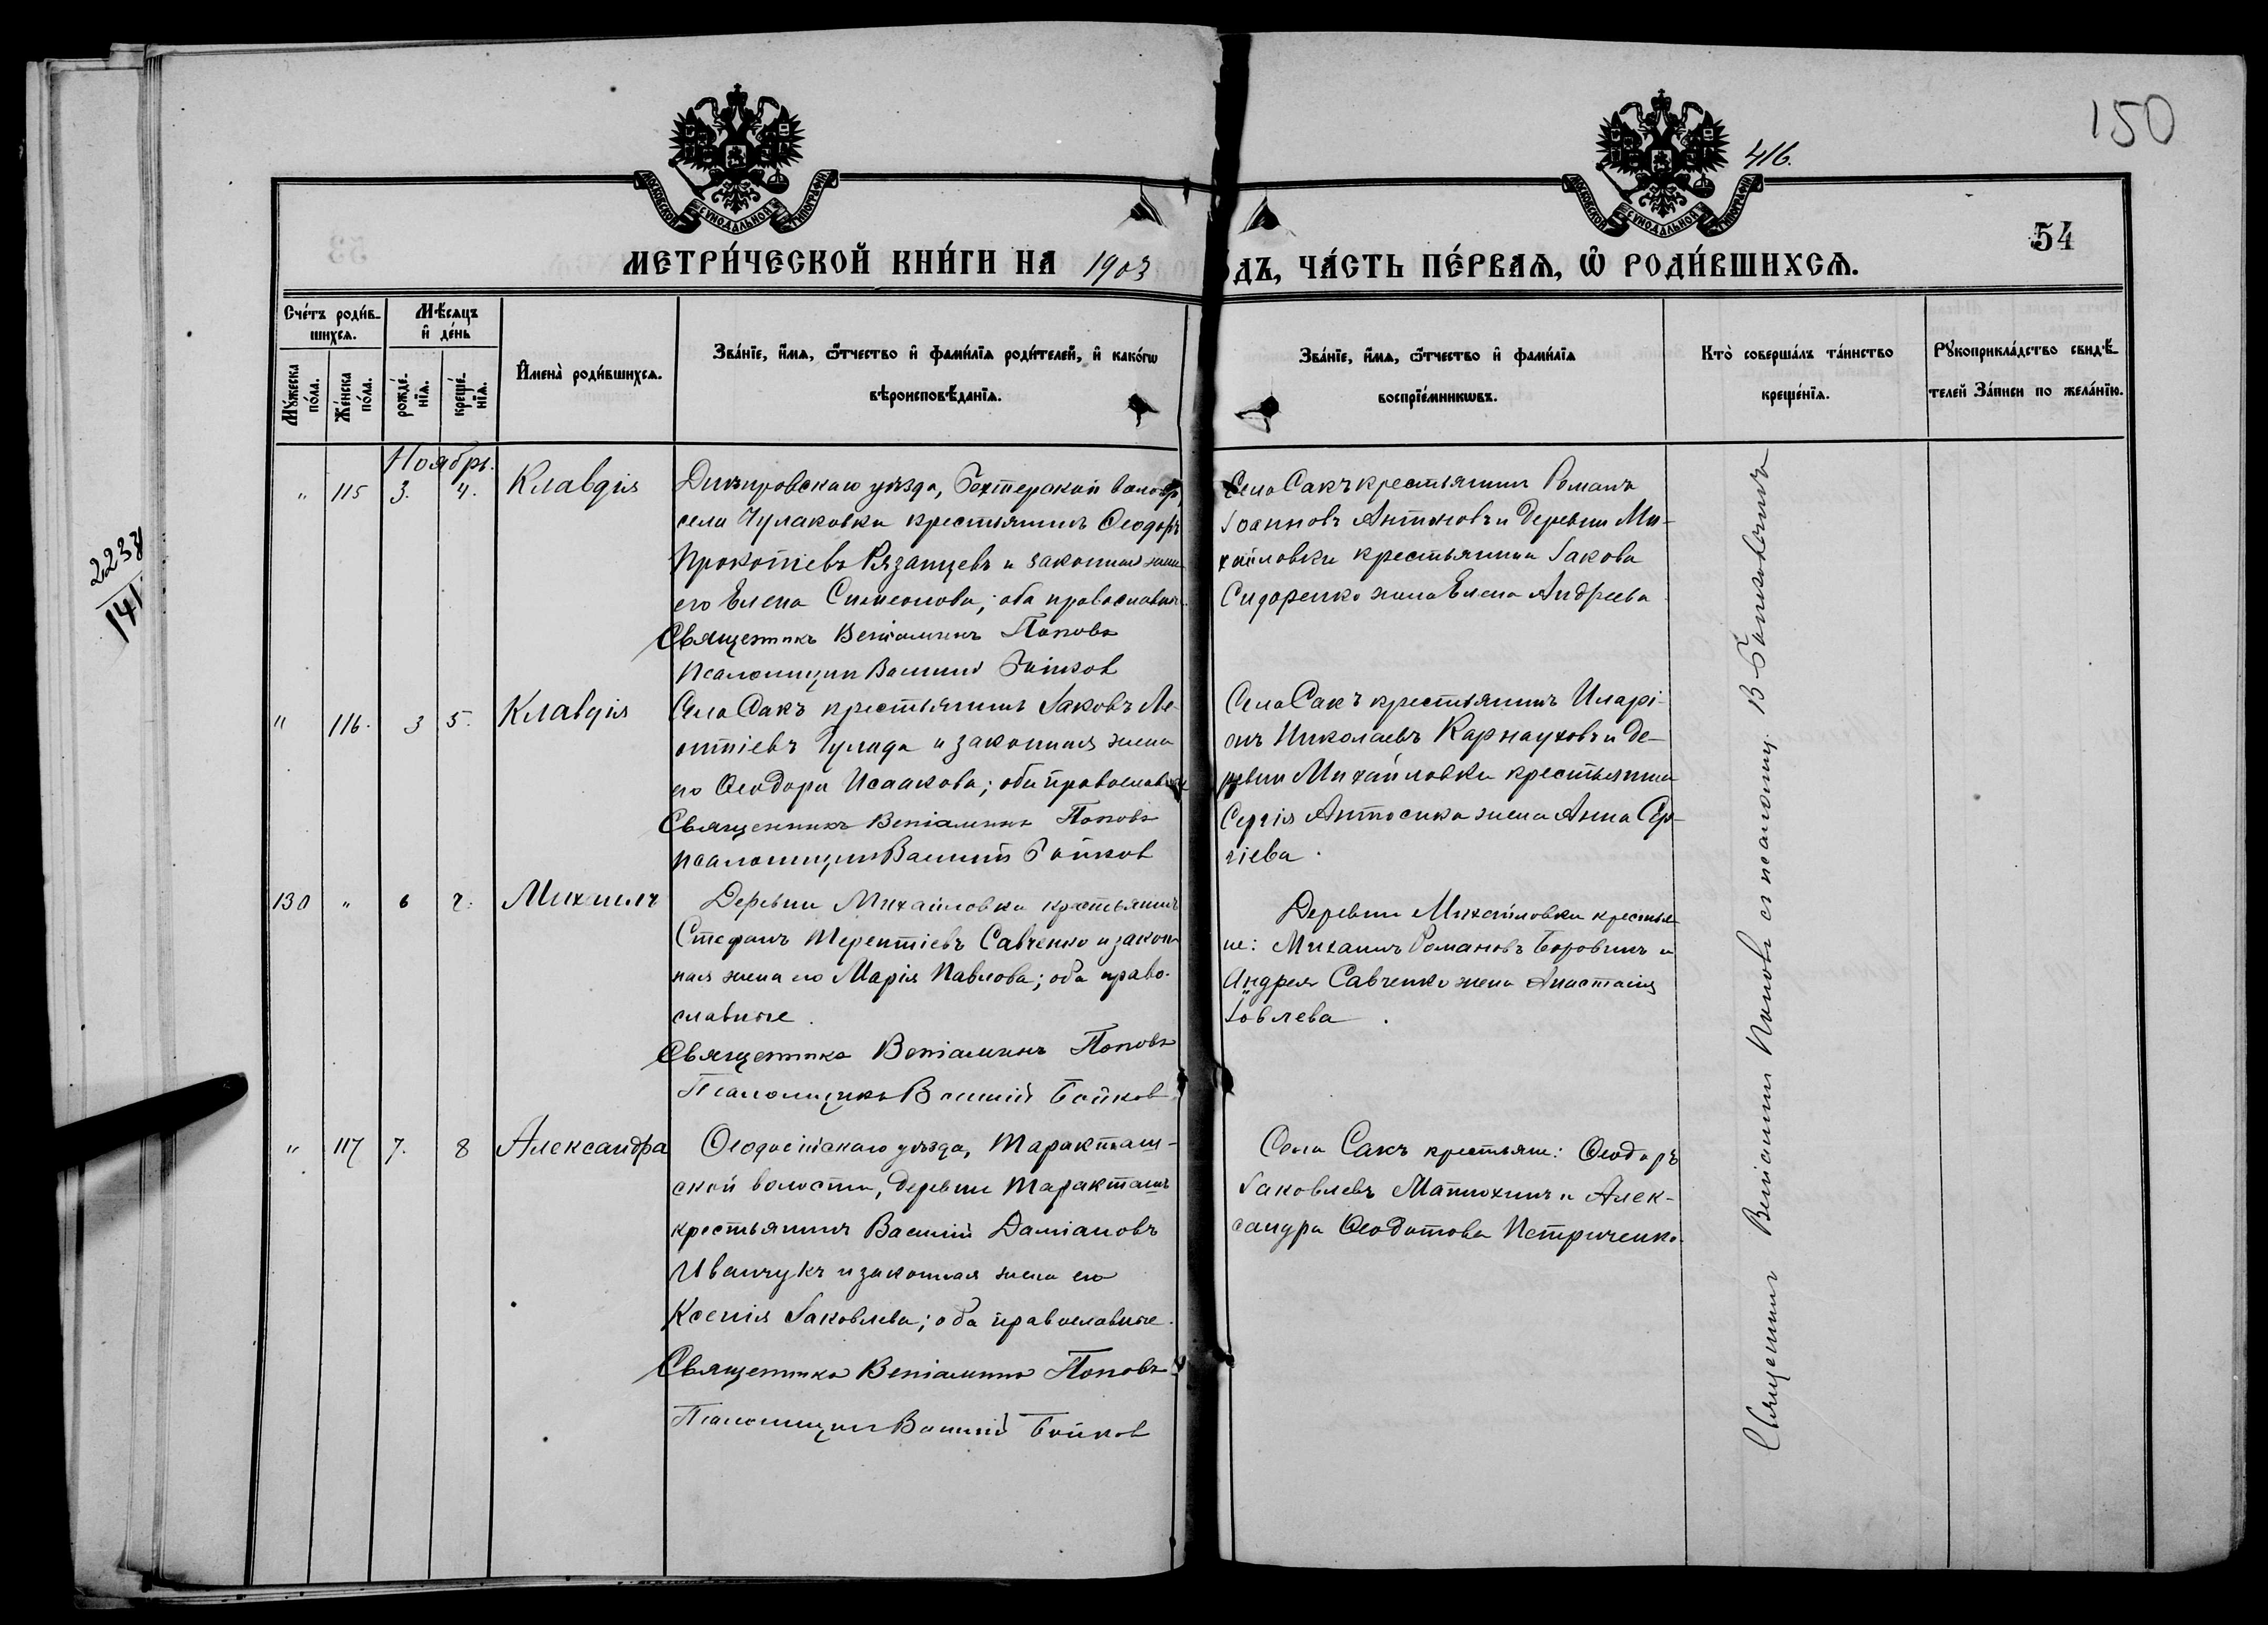 150
416.
54
МОСКОВСКОЙ СѴНОДАЛЬНОЙ ТИПОГРАФІИ
МОСКОВСКОЙ СѴНОДАЛЬНОЙ ТИПОГРАФІИ
МЕТРИ́ЧЕСКОЙ КНИ́ГИ НА 1903
ДЪ, ЧА́СТЬ ПЕ́РВАѦ, Ѡ РОДИ́ВШИХСѦ.
Сче́тъ роди́в-
шихсѧ.
Мѣ́сѧцъ
и҆ де́нь
Мꙋ́жеска
по́ла.
Же́нска
по́ла.
рожде́-
нїѧ.
креще́-
нїѧ.
И҆мена̀ роди́вшихсѧ.
Зва́нїе, и҆́мѧ, ѻ҆́тчество и҆ фами́лїѧ роди́телей, и҆ како́гѡ
вѣроисповѣ́данїѧ.
Зва́нїе, и҆́мѧ, ѻ҆́тчество и҆ фами́лїѧ
воспрїе́мникѡвъ.
Кто̀ соверша́лъ та́инство
креще́нїѧ.
Рꙋкоприкла́дство свидѣ́-
телей За́писи по жела́нїю.
Ноябрь.
" 115 3. 4. Клавдія
Днѣпровскаго уѣзда, Бехтерской волос
села Чулаковки крестьянинъ Ѳеодоръ
Прокопіевъ Рязанцевъ и законная жена
его Елена Симеонова; оба православн
Священникъ Веніаминъ Поповъ
Псаломщикъ Василій Бойков
Села Сакъ крестьянинъ Романъ
Іоанновъ Антоновъ и деревни Ми-
хайловки крестьянина Іакова
Сидоренко жена Елена Андреева
" 116. 3 5. Клавдія
Села Сакъ крестьянинъ Іаковъ Ле-
онтіевъ Гулида и законная жена
его Ѳеодора Исаакова; оба православн
Священникъ Веніаминъ Поповъ
псаломщикъ Василій Бойков
Села Сакъ крестьянинъ Иларі-
онъ Николаевъ Карнауховъ и де-
ревни Михайловки крестьянина
Сергія Антосика жена Анна Сер-
гіева.
130 " 6 7. Михаилъ
Деревни Михайловки крестьянинъ
Стефанъ Терентіевъ Савченко и закон-
ная жена его Марія Павлова; оба право-
славные.
Священникъ Веніаминъ Поповъ
Псаломщикъ Василій Бойков
Деревни Михайловки крестья-
не: Михаилъ Романовъ Боровикъ и
Андрея Савченко жена Анастасія
Іовлева.
" 117 7. 8 Александра
Ѳеодосійскаго уѣзда, Таракташ-
ской волости, деревни Таракташъ
крестьянинъ Василій Даміановъ
Иванчукъ и законная жена его
Ксенія Іаковлева; оба православные.
Священникъ Веніаминъ Поповъ
Псаломщикъ Василій Бойков
Села Сакъ крестьяне: Ѳеодоръ
Іаковлевъ Матюхинъ и Алек-
сандра Ѳеодотова Петриченко.
Священникъ Веніаминъ Поповъ съ псаломщ. В. Бойковымъ
141